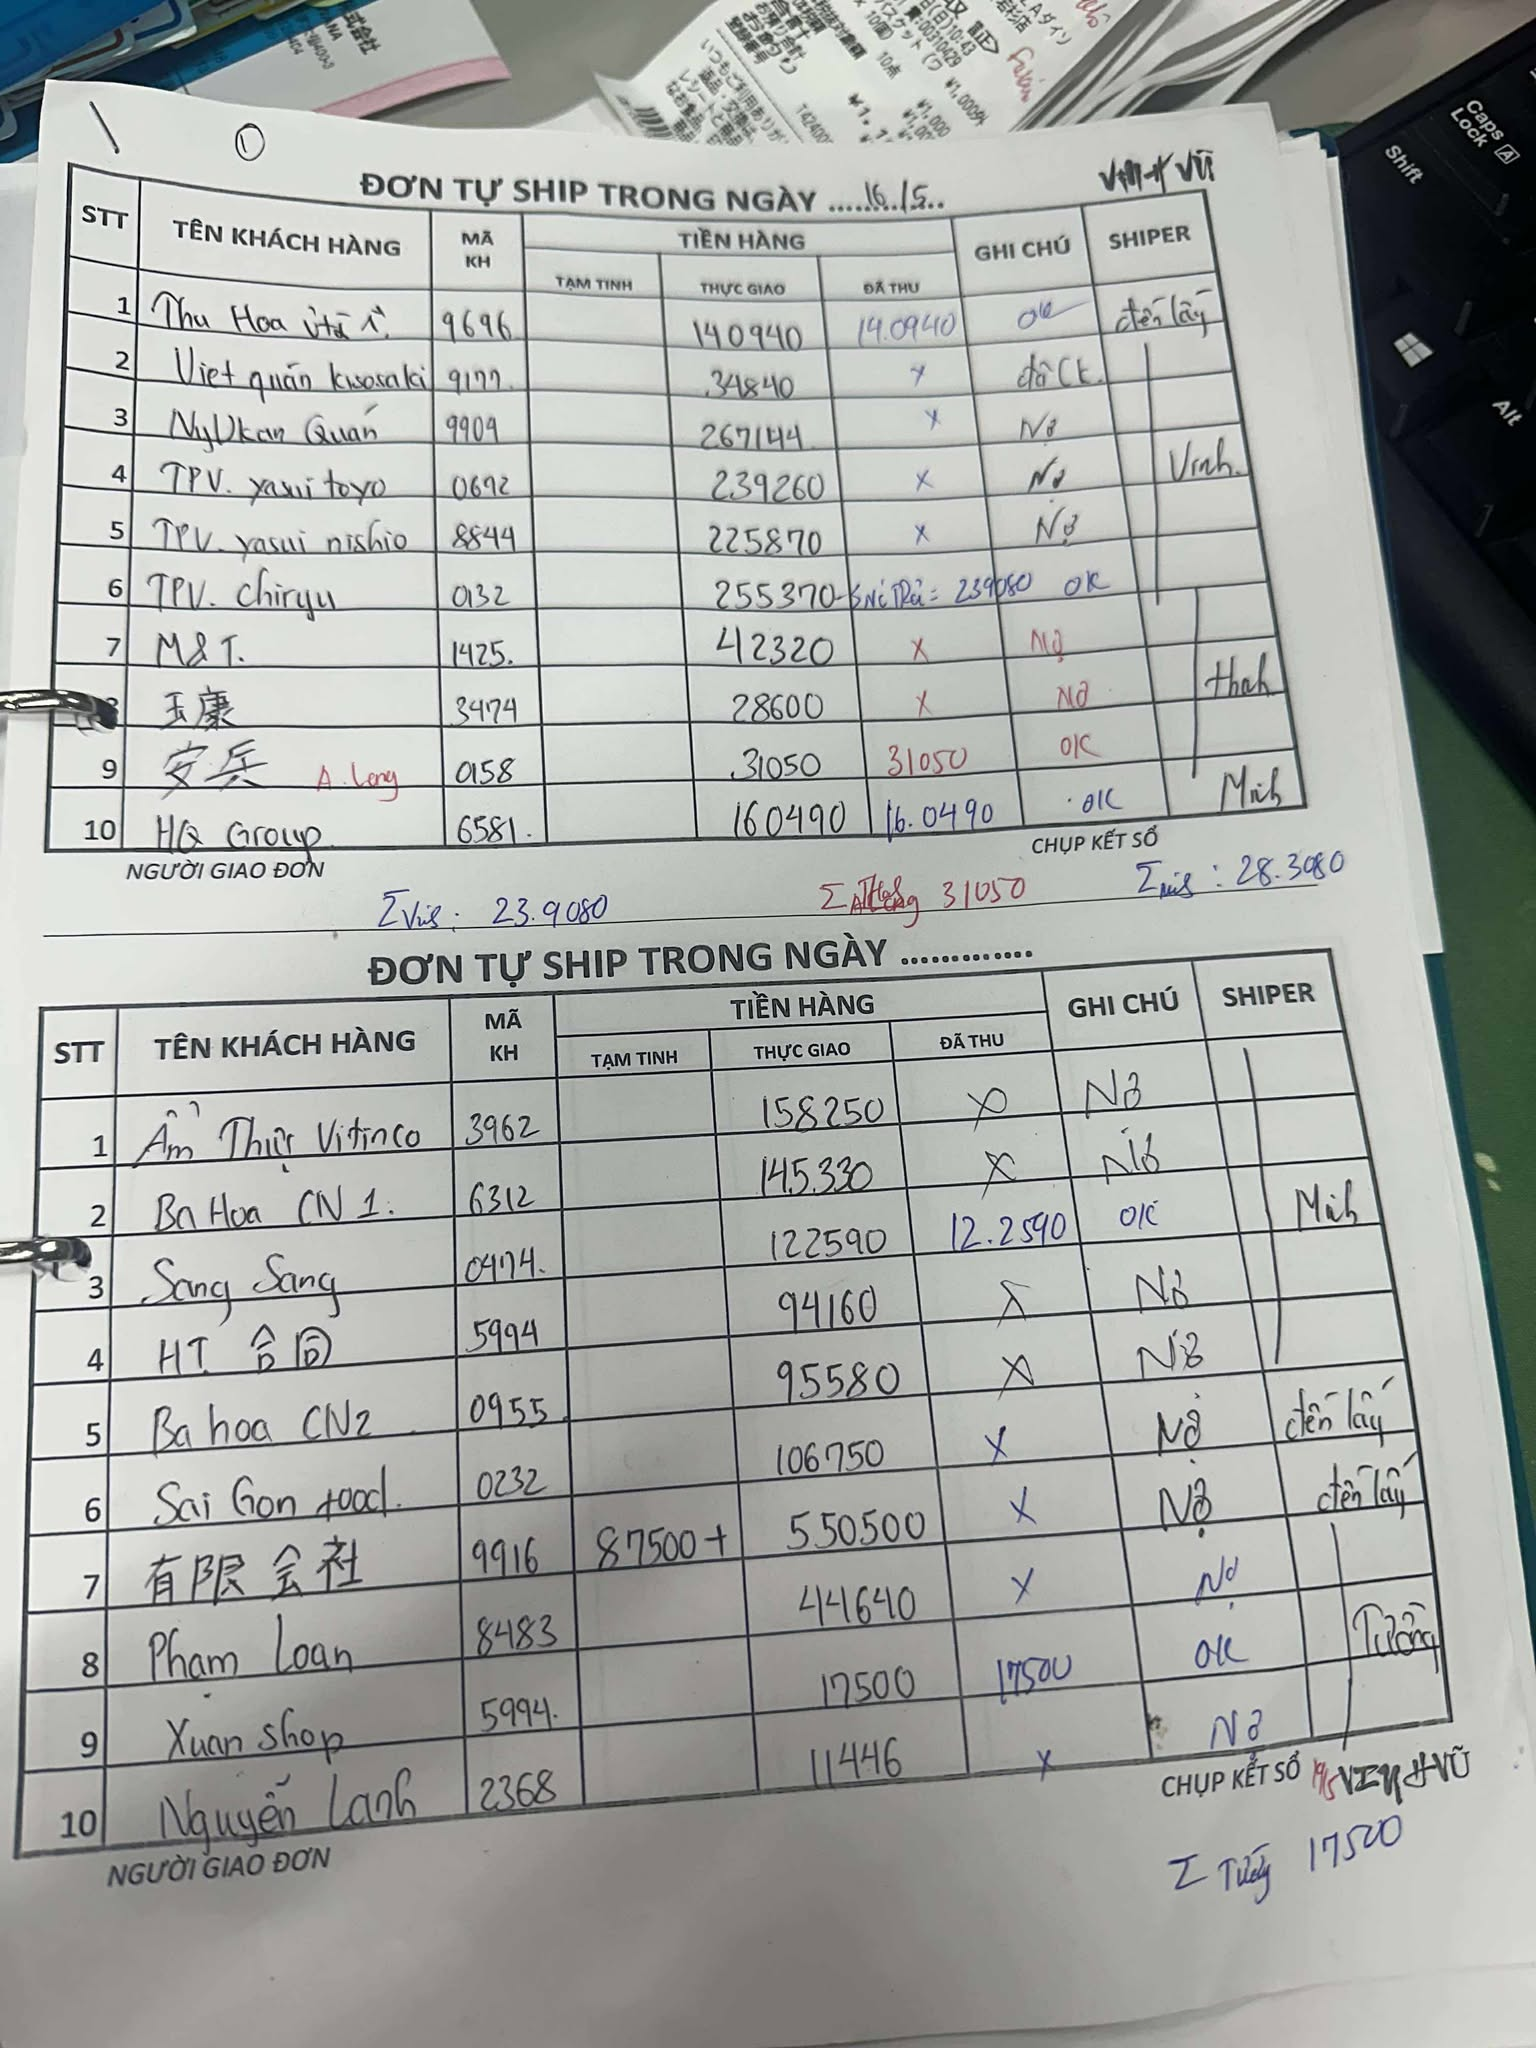 1 ①
ĐƠN TỰ SHIP TRONG NGÀY .....16../5..
VŨ
STT TÊN KHÁCH HÀNG MÃ KH TIỀN HÀNG GHI CHÚ SHIPER
TẠM TINH THỰC GIAO ĐÃ THU
1 Thu Hoa 9696 140940 14.0940 OK đến lấy
2 Viet quán kisosaki 9177. 34840 x đã Ck.
3 NyUkan Quán 9909 267144 x Nợ
4 TPV. yasui toyo 0692 239260 x Nợ Vinh.
5 TPV. yasui nishio 8844 225870 x Nợ
6 TPV. chiryu 0132 255370 = 239080 OK
7 M&T. 1425. 42320 x Nợ
玉康 3474 28600 x Nợ thah
9 安兵 A. Long 0158 31050 31050 OK
10 HQ Group 6581. 160490 16.0490 OK Mih
NGƯỜI GIAO ĐƠN CHỤP KẾT SỔ
Σ : 23.9080 Σ 31050 Σ : 28.3080
ĐƠN TỰ SHIP TRONG NGÀY .............
STT TÊN KHÁCH HÀNG MÃ KH TIỀN HÀNG GHI CHÚ SHIPER
TẠM TINH THỰC GIAO ĐÃ THU
1 Ẩm Thực Vitinco 3962 158250 x Nợ
2 Ba Hoa CN 1. 6312 145.330 x Nợ
3 Sang Sang 0474. 122590 12.2590 OK Mih
4 HT 合同 5994 94160 x Nợ
5 Ba hoa CN2 0955 95580 x Nợ
6 Sai Gon food. 0232 106750 x Nợ đến lấy
7 有限会社 9916 87500+ 550500 x Nợ đến lấy
8 Phạm Loan 8483 44640 x Nợ
9 Xuan shop 5994. 17500 17500 OK Tường
10 Nguyễn Lanh 2368 11446 x Nợ
NGƯỜI GIAO ĐƠN CHỤP KẾT SỔ 19/5 VINH VŨ
Σ 17500